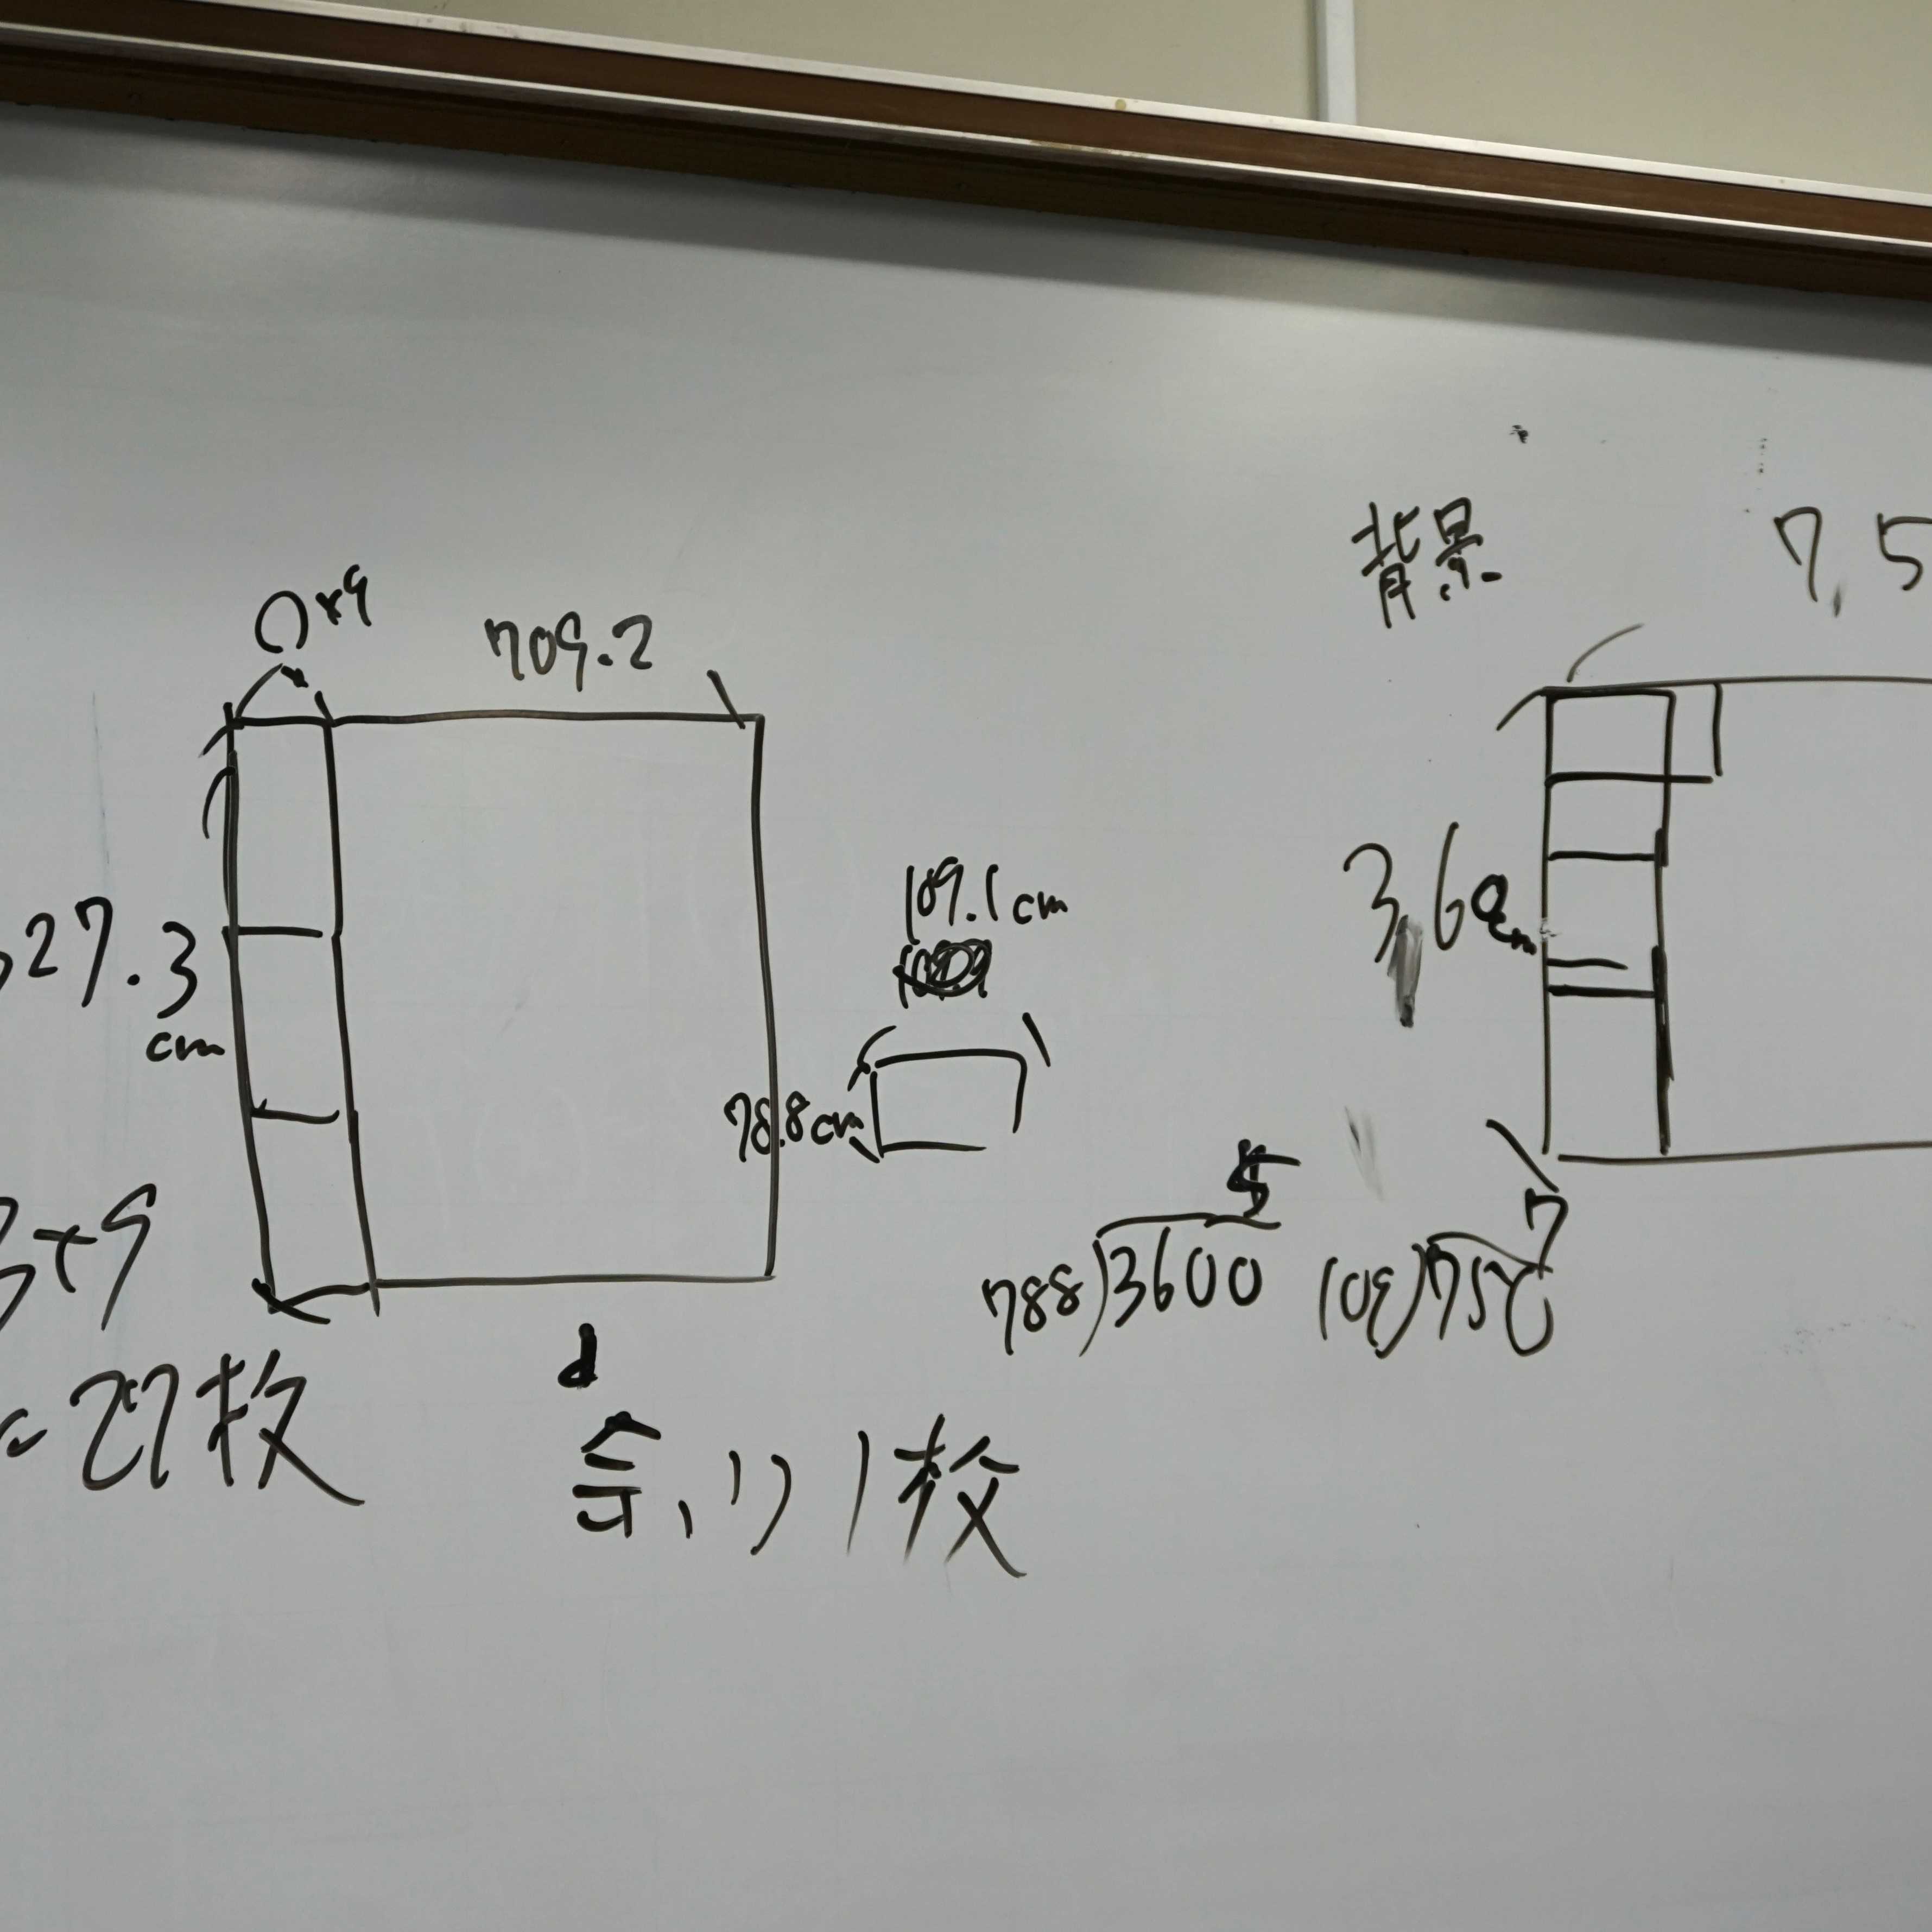 ○×9
709.2
27.3
cm
3×9
=27枚
余り1枚
109.1cm
78.8cm
背景
7,5
3,60
788)3600
5
7